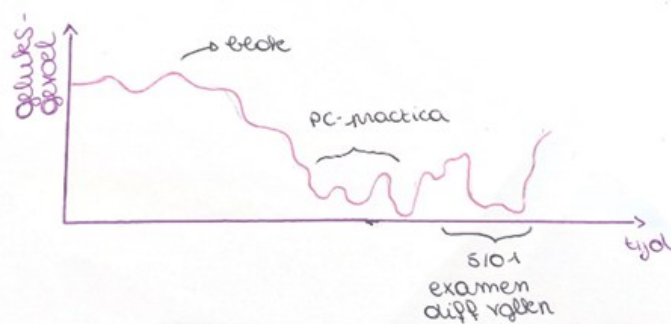 geluks-
gevoel
blok
PC-practica
tijd
5/01
examen
diff vgllen